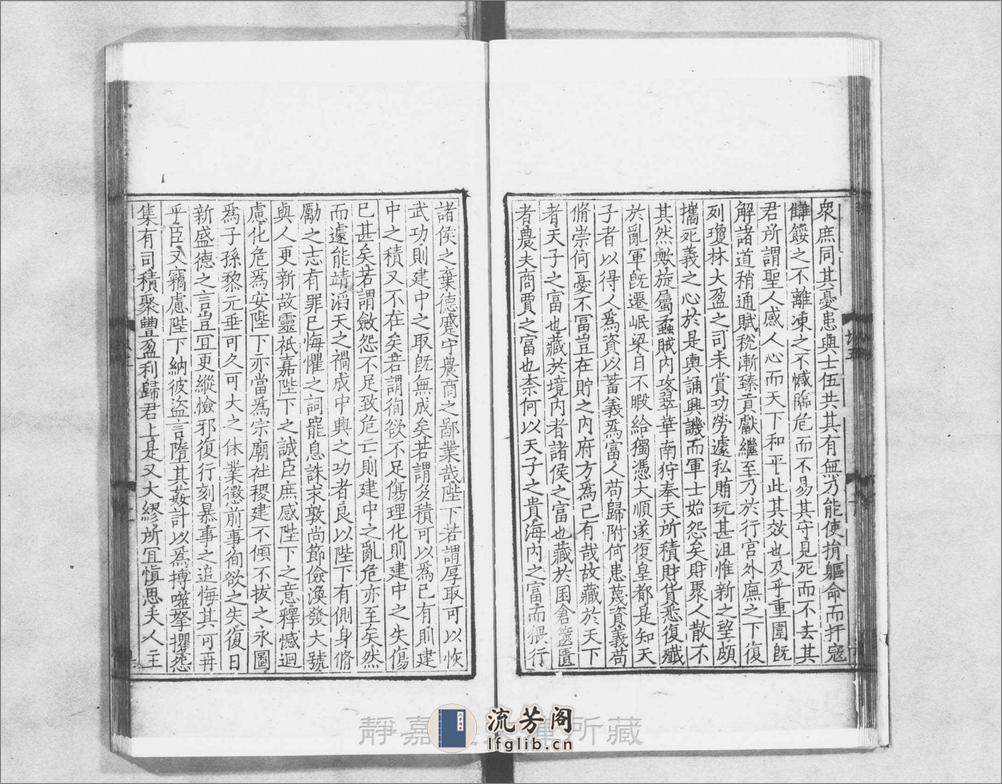 衆庶同其憂患與士伍共其有無乃能使捐軀命而扞寇
讎餒之不離凍之不憾臨危而不易其守見死而不去其
君所謂聖人感人心而天下和平此其效也及乎重圍旣
解諸道稍通賦稅漸臻貢獻繼至乃於行宫外廡之下復
列瓊林大盈之司未賞功勞遽私賄玩甚沮惟新之望頗
攜死義之心於是輿誦興譏而軍士始怨矣財聚人散不
其然歟旋屬蟊賊内攻翠華南狩奉天所積財貨悉復殲
於亂軍旣遷岷梁日不暇給獨憑大順遂復皇都是知天
子者以得人爲資以蓄義爲富人苟歸附何患蔑資義苟
脩崇何憂不富豈在貯之内府方爲己有哉故藏於天下
者天子之富也藏於境内者諸侯之富也藏於囷倉篋匱
者農夫商賈之富也柰何以天子之貴海内之富而猥行
諸侯之棄德蹙守農商之鄙業哉陛下若謂厚取可以恢
武功則建中之取旣無成矣若謂多積可以爲己有則建
中之積又不在矣若謂徇欲不足傷理化則建中之失傷
已甚矣若謂斂怨不足致危亡則建中之亂危亦至矣然
而遽能靖滔天之禍成中興之功者良以陛下有側身脩
勵之志有罪己悔懼之詞罷息誅求敦尚節儉渙發大號
與人更新故靈祇嘉陛下之誠臣庶感陛下之意釋憾迴
慮化危爲安陛下亦當爲宗廟社稷建不傾不拔之永圖
爲子孫黎元垂可久可大之休業懲前事徇欲之失復日
新盛德之言豈宜更縱憸邪復行刻暴事之追悔其可再
乎臣又竊慮陛下納彼盜言隋其姦計以爲搏噬拏攫悉
集有司積聚豐盈利歸君上是又大繆所宜慎思夫人主
靜嘉 所藏
流芳阁
lfglib.cn